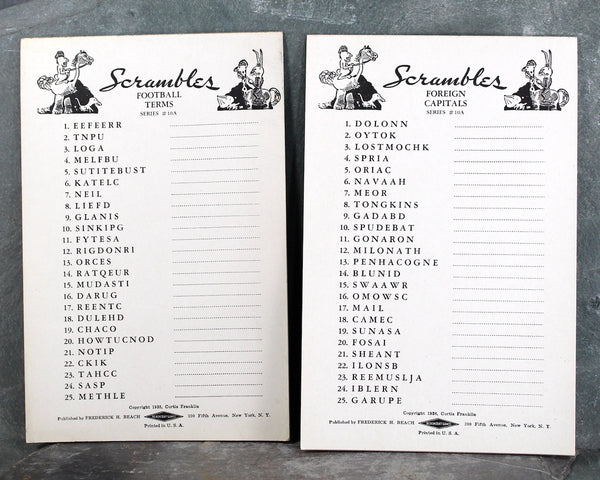 Scrambles
FOOTBALL
TERMS
SERIES #10A
1. EEFEERR
2. TNPU
3. LOGA
4. MELFBU
5. SUTITEBUST
6. KATELC
7. NEIL
8. LIEFD
9. GLANIS
10. SINKIPG
11. FYTESA
12. RIGDONRI
13. ORCES
14. RATQEUR
15. MUDASTI
16. DARUG
17. REENTC
18. DULEHD
19. CHACO
20. HOWTUCNOD
21. NOTIP
22. CKIK
23. TAHCC
24. SASP
25. METHLE
Copyright 1938, Curtis Franklin
Published by FREDERICK H. BEACH 200 Fifth Avenue, New York, N. Y.
Printed in U. S. A.
Scrambles
FOREIGN
CAPITALS
SERIES #10A
1. DOLONN
2. OYTOK
3. LOSTMOCHK
4. SPRIA
5. ORIAC
6. NAVAAH
7. MEOR
8. TONGKINS
9. GADABD
10. SPUDEBAT
11. GONARON
12. MILONATH
13. PENHACOGNE
14. BLUNID
15. SWAAWR
16. OMOWSC
17. MAIL
18. CAMEC
19. SUNASA
20. FOSAI
21. SHEANT
22. ILONSB
23. REEMUSLJA
24. IBLERN
25. GARUPE
Copyright 1938, Curtis Franklin
Published by FREDERICK H. BEACH 200 Fifth Avenue, New York, N. Y.
Printed in U.S.A.